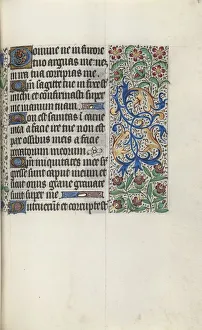 Domine ne in furore
tuo arguas me ne
in ira tua corripias me
Qm sagitte tue in fixe st
michi et confirmasti super
me manum tuam
on est sanitas i carne
mea a facie ire tue non est
pax ossibus meis a facie
peccatorum meorum
Qm iniquitates mee su
gresse sunt caput meum et
sicut onus grave gravate
sunt super me
utruerunt et corrupte st